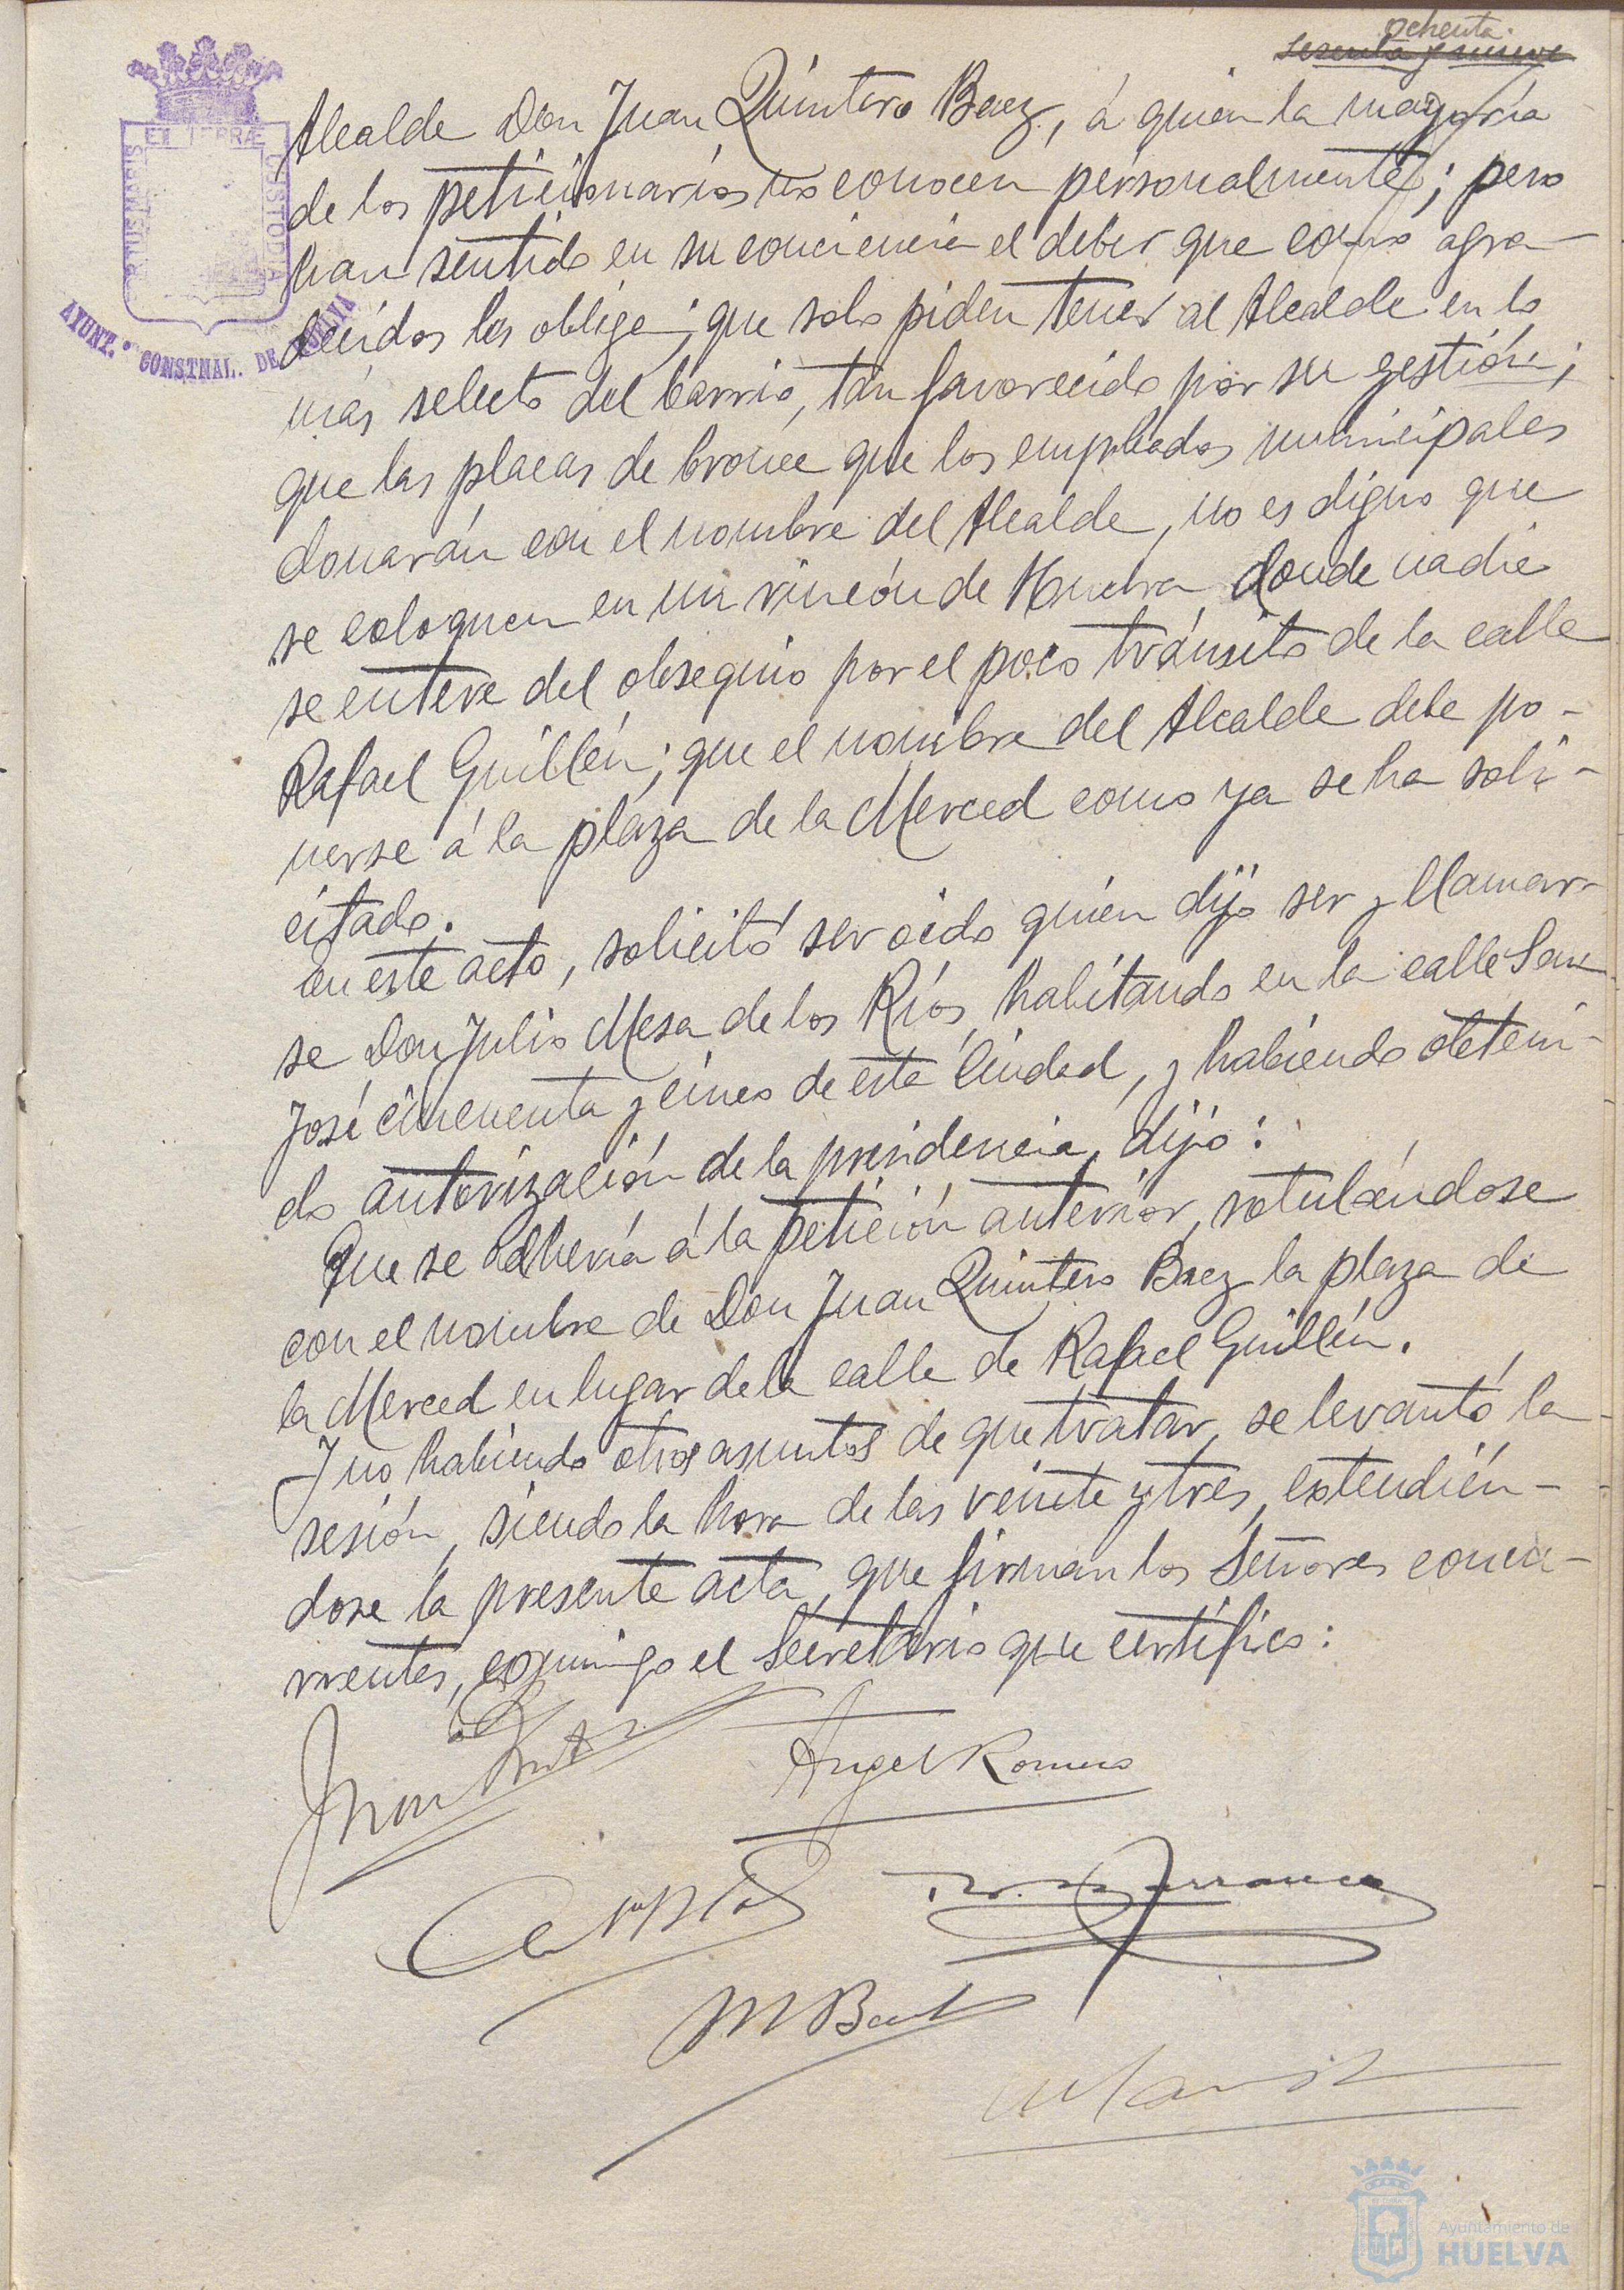 ochenta.
sesenta y nueve
EN TERRÆ
CUSTODIA
PORTUS MARIS
AYUNT.º CONSTNAL. DE HUELVA
Alcalde Don Juan Quintero Baez, á quien la mayoría
de los peticionarios no conocen personalmente; pero
han sentido en su conciencia el deber que como agra-
decidos les obliga; que solo piden tener al Alcalde en lo
más selecto del barrio, tan favorecido por su gestión;
que las placas de bronce que los empleados municipales
donarán con el nombre del Alcalde, no es digno que
se coloquen en un rincón de Huelva donde nadie
se entere del obsequio por el poco tránsito de la calle
Rafael Guillén; que el nombre del Alcalde debe po-
nerse á la plaza de la Merced como ya se ha soli-
citado.
En este acto, solicitó ser oido quién dijo ser y llamar-
se Don Julio Mesa de los Ríos, habitando en la calle San
José cincuenta y cinco de esta Ciudad, y habiendo obteni-
do autorización de la presidencia, dijo:
Que se adhería á la petición anterior, rotulándose
con el nombre de Don Juan Quintero Baez la plaza de
la Merced en lugar de la calle de Rafael Guillén.
Y no habiendo otros asuntos de que tratar, se levantó la
sesión, siendo la hora de las veinte y tres, extendién-
dose la presente acta, que firman los Señores concu-
rrentes, conmigo el Secretario que certifico:
Juan
Angel Romero
M
Ayuntamiento de
HUELVA